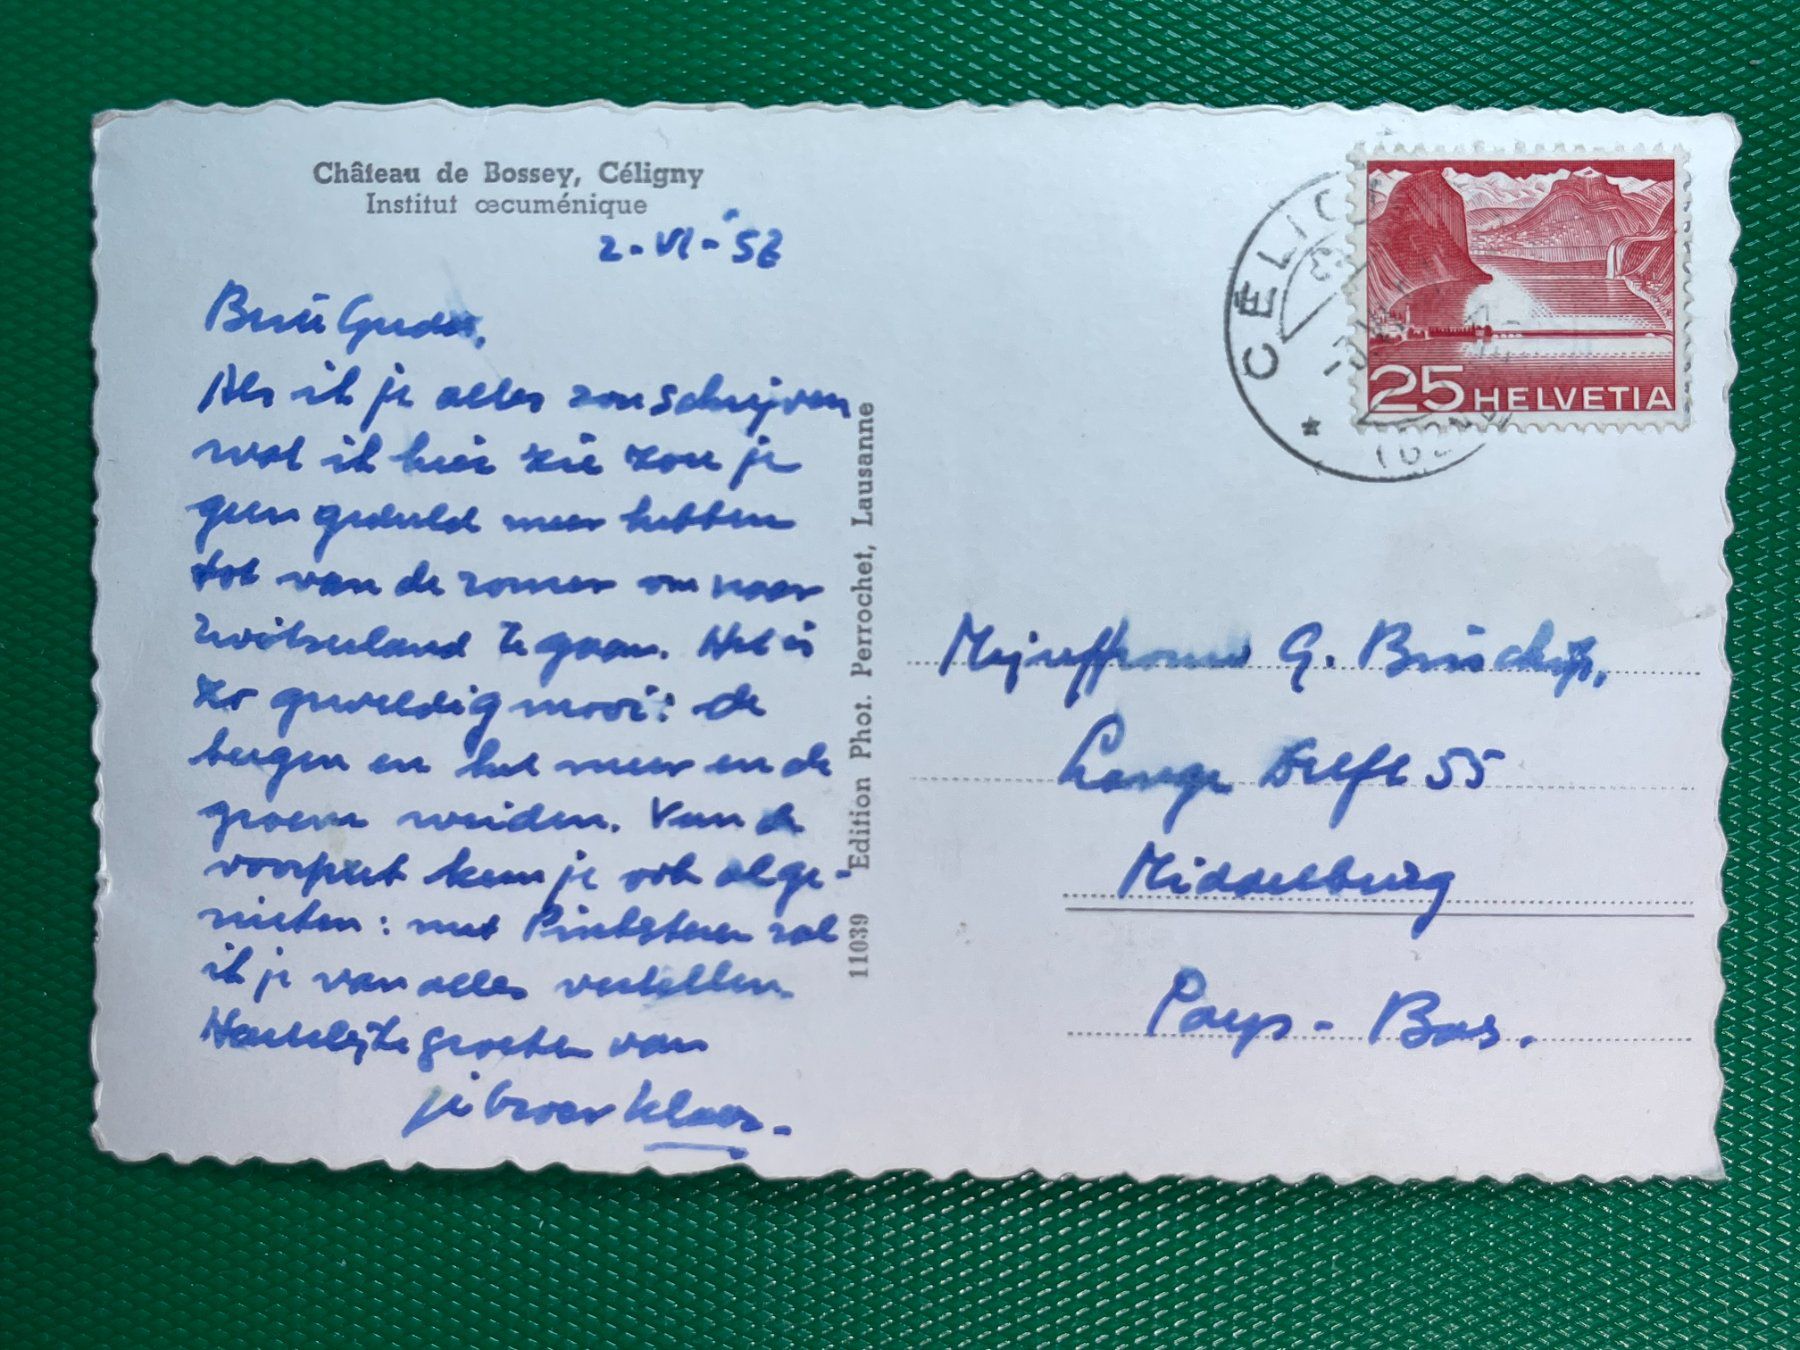 Château de Bossey, Céligny
Institut œcuménique
2-VI-56
Als ik je alles zou schrijven
wat ik hier zie zou je
geen geduld meer hebben
tot van de zomer om naar
Zwitserland te gaan. Het is
zo geweldig mooi: de
bergen en het meer en de
groene weiden. Van de
voorpret kun je ook al ge-
nieten: met Pinksteren zal
ik je van alles vertellen.
Hartelijke groeten van
je broer Klaas.
11039 Edition Phot. Perrochet, Lausanne
CÉLIG
25 HELVETIA
Mejuffrouw G.
Lange Delft 55
Middelburg
Pays-Bas.